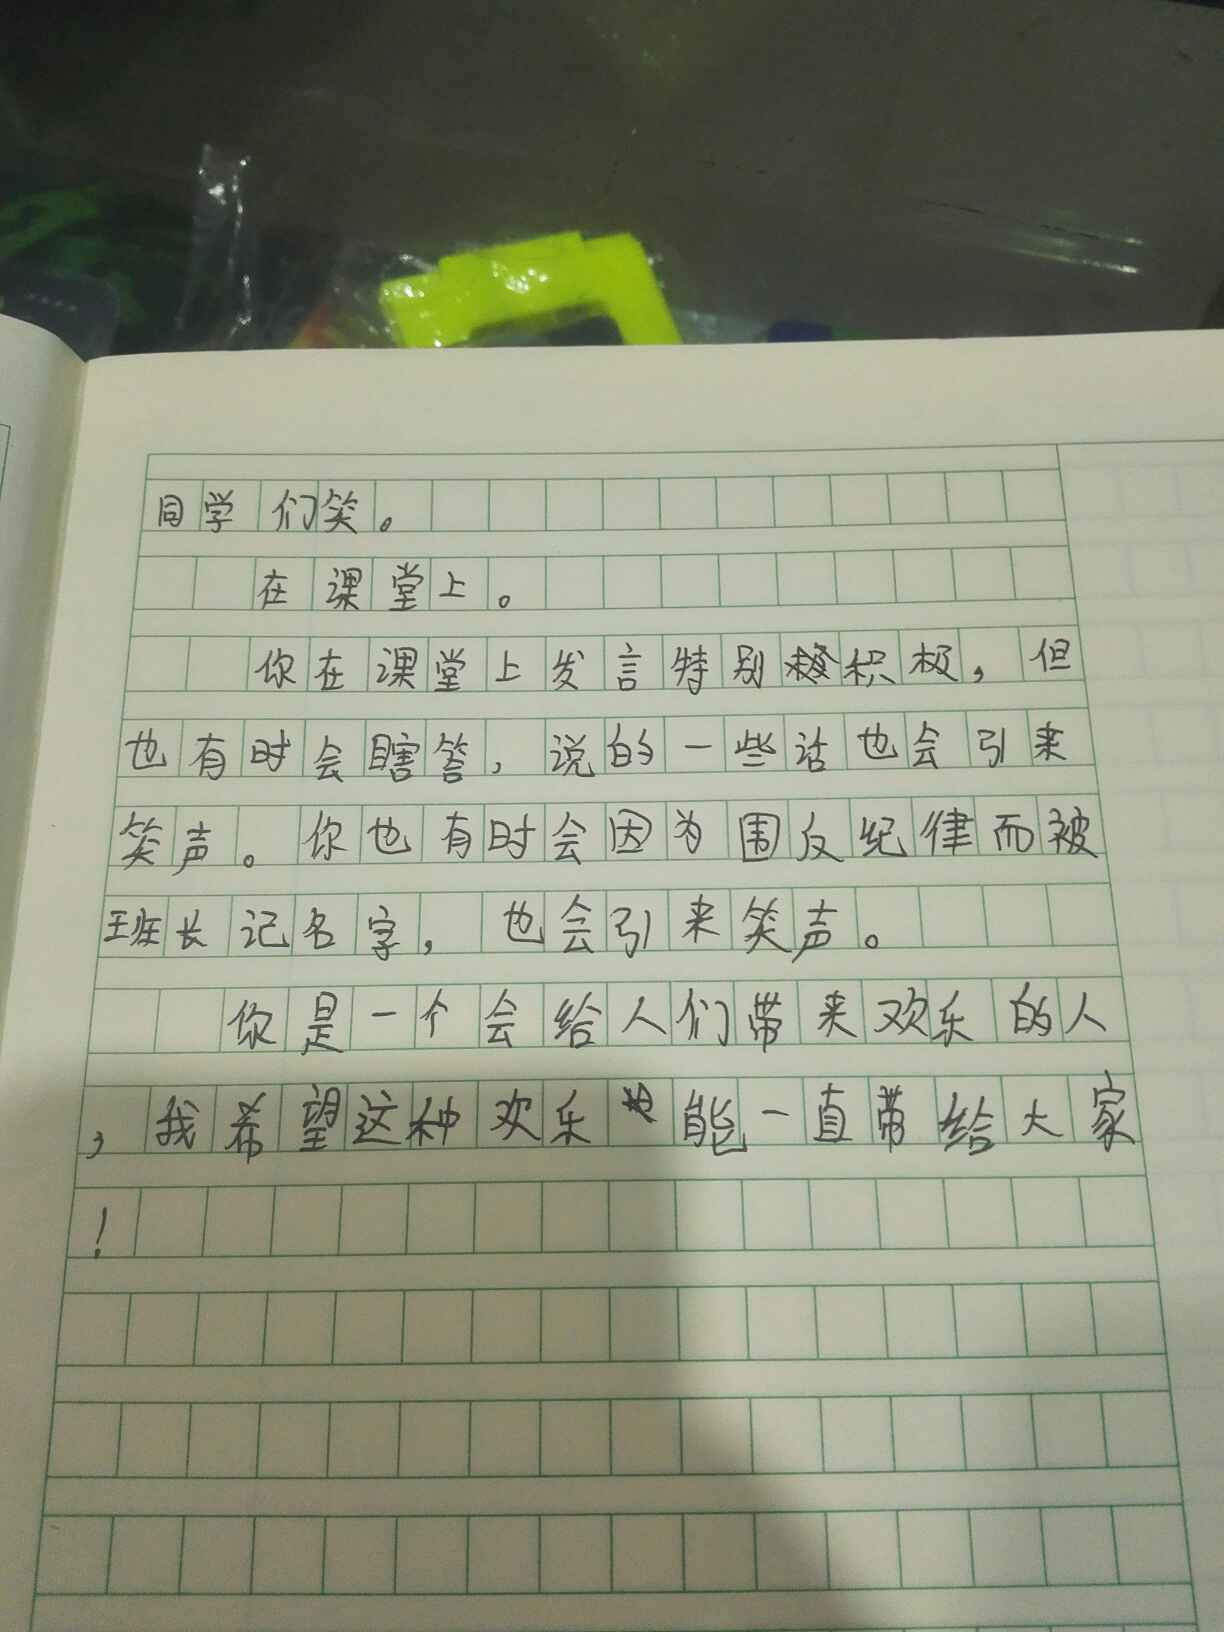 同学们笑。
在课堂上。
你在课堂上发言特别积极，但
也有时会瞎答，说的一些话也会引来
笑声。你也有时会因为围反纪律而被
班长记名字，也会引来笑声。
你是一个会给人们带来欢乐的人
，我希望这种欢乐能一直带给大家
！